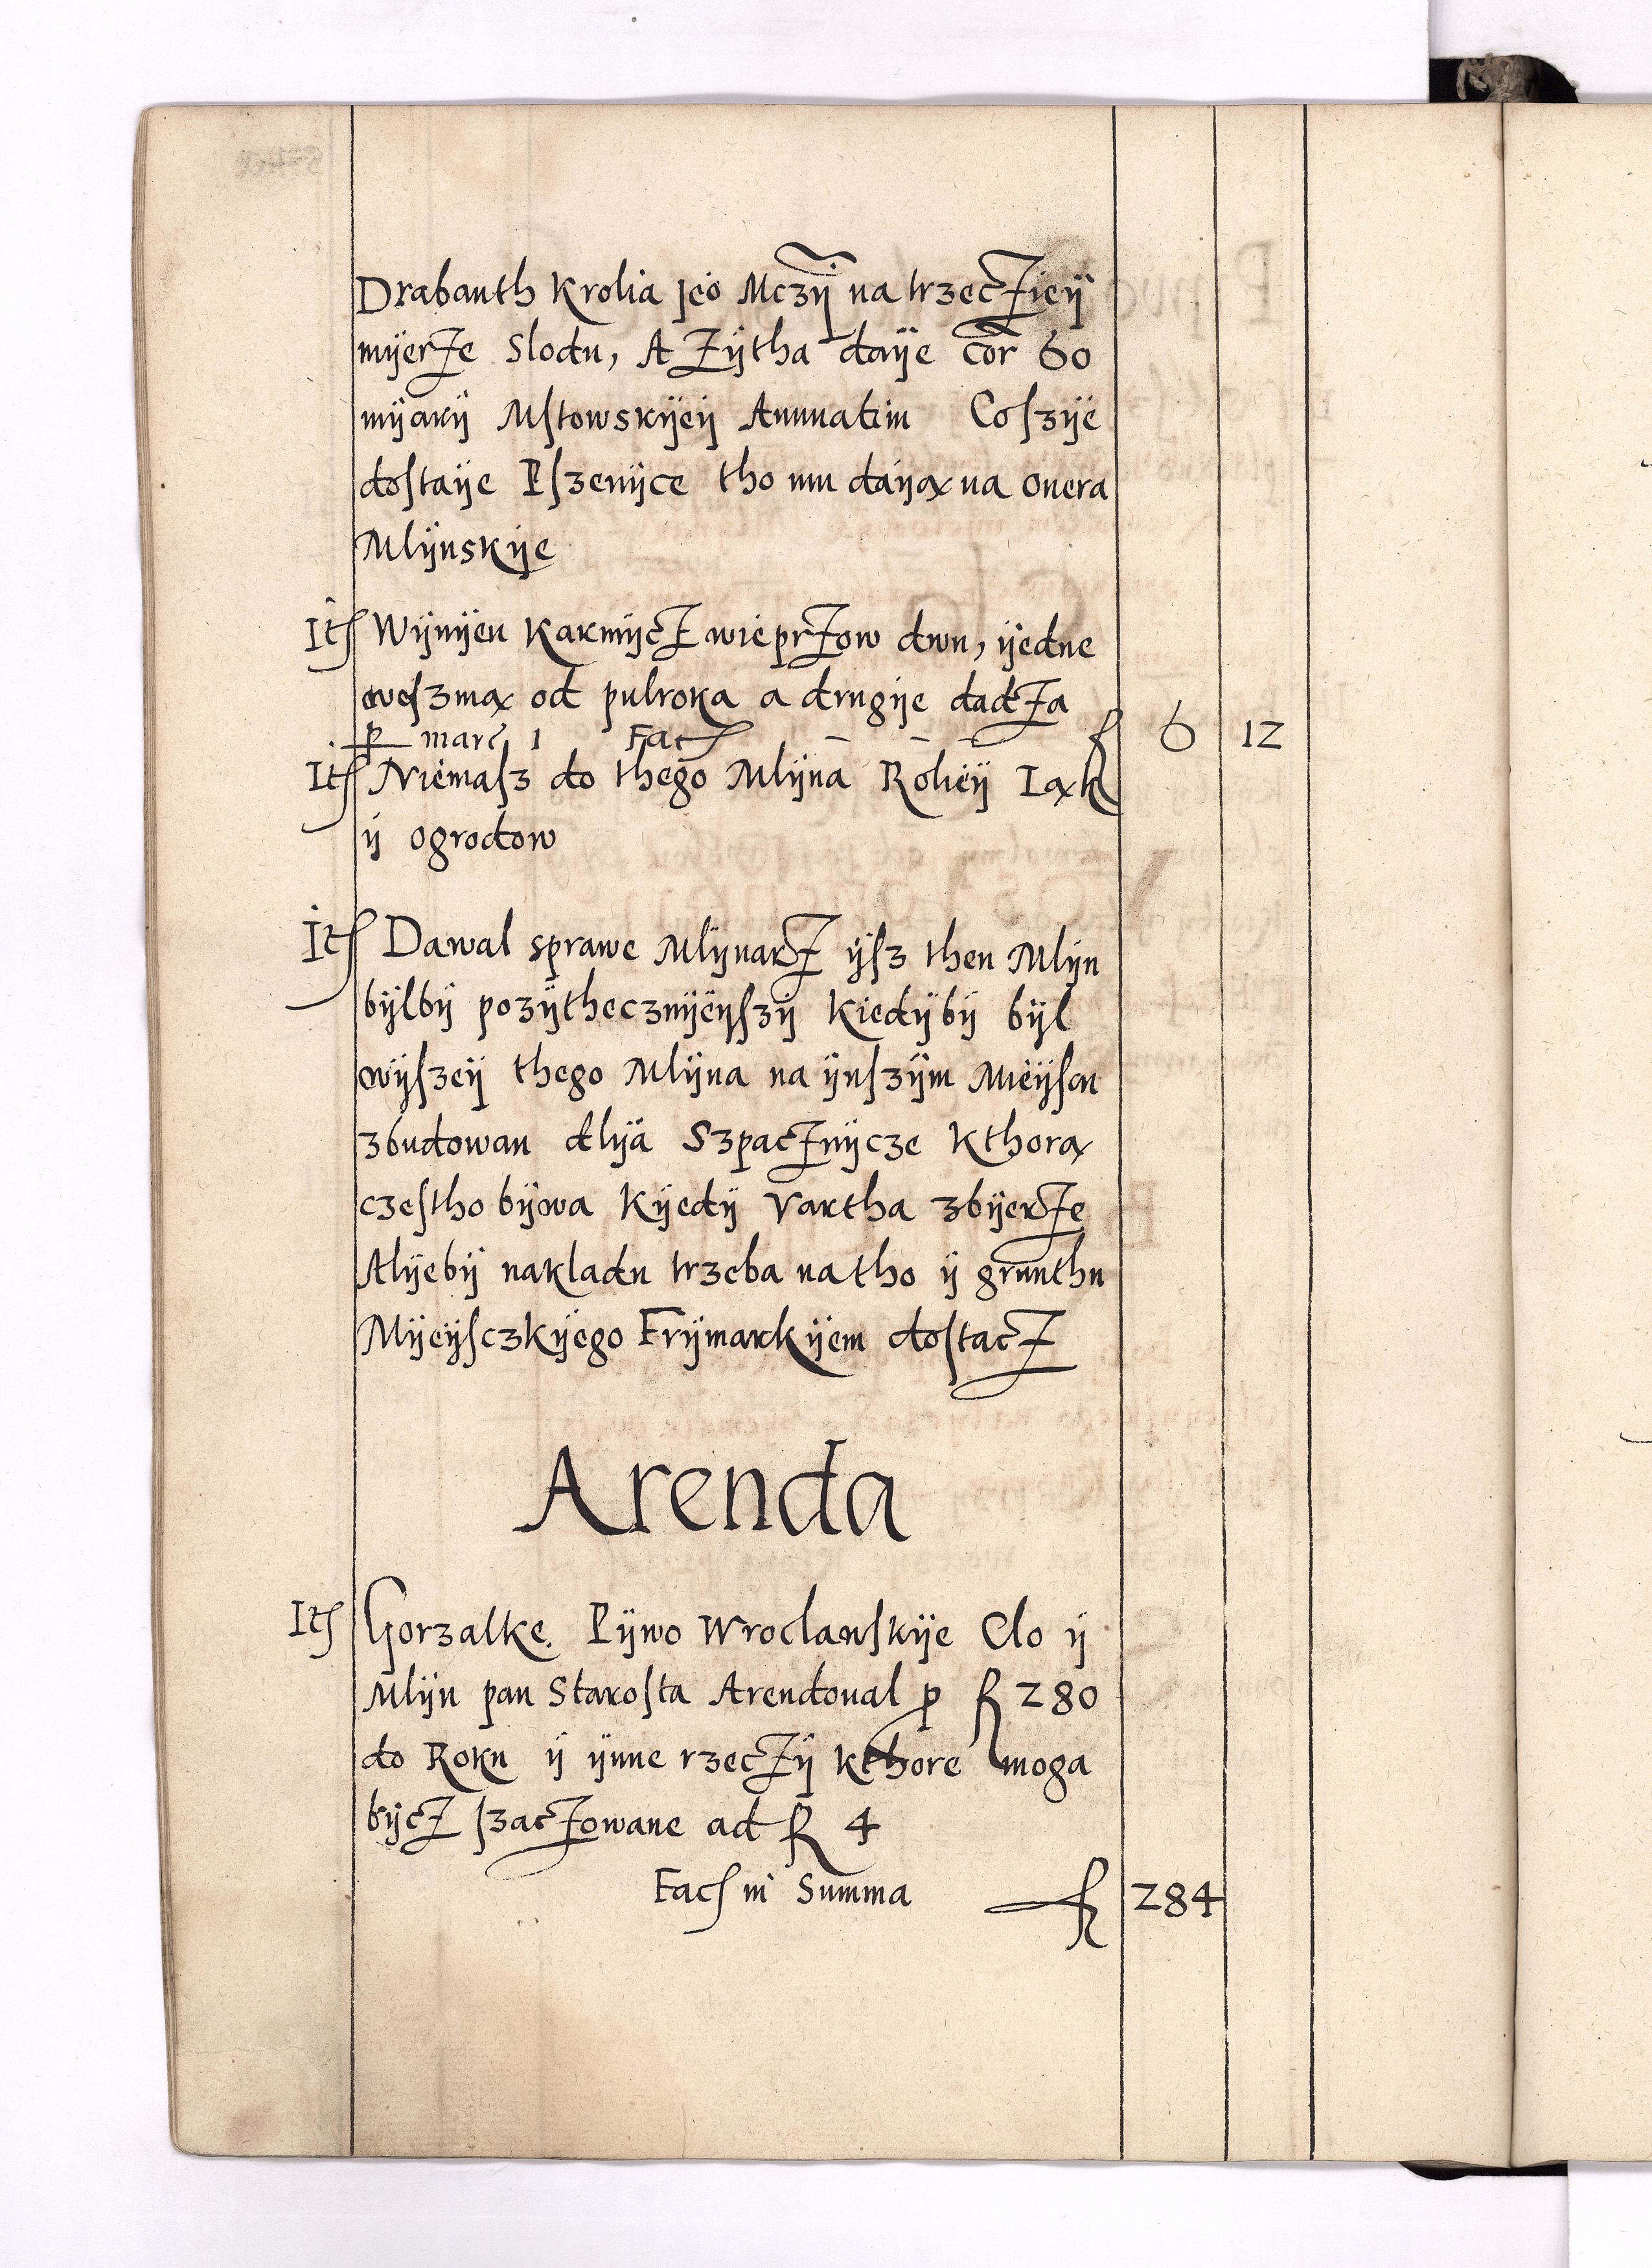 Drabanth Krolia jeo Mczÿ na trzecżieÿ
mÿerże Slodu, A Zÿtha daÿe cor 60
mÿarÿ Mstowskÿeÿ Annuatim Coszÿe
dostaÿe Pszenÿce tho mu daÿą na onera
Mlÿnskÿe
Itm Wÿnÿen karmÿcż wieprżow dwu, ÿedne
weszmą od pulroka a drugÿe dadża
p marc 1 Fac fl 6 12
Itm Niemasz do thego Mlÿna Roliëÿ Iąk
ÿ ogrodow
Itm Dawal sprawe Mlÿnarż ÿsz then Mlÿn
bÿlbÿ pozÿthecznÿeÿszÿ kiedÿbÿ bÿl
wÿszeÿ thego Mlÿna na ÿnszÿm Mieÿscu
zbudowan dlÿa Szpacżnÿcze kthorą
czestho bÿwa kÿedÿ Vartha zbÿerże
Alÿebÿ nakladu trzeba na tho ÿ grunthu
Mÿeÿsczkÿego Frÿmarkÿem dostacż
Arenda
Itm Gorzalke Pÿwo Wroclawskÿe Clo ÿ
Mlÿn pan Starosta Arendoual p fl 280
do Roku ÿ ÿnne rzecżÿ kthore moga
bÿcż szacżowane ad fl 4
Fac in Summa fl 284